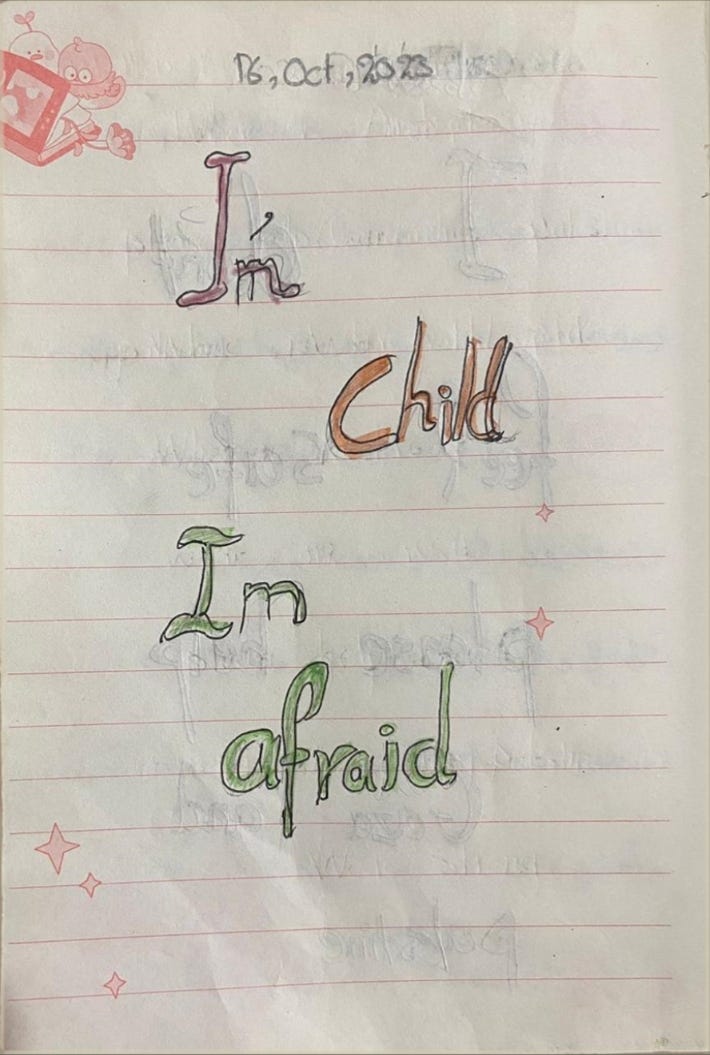 16, Oct, 2023
I'm
Child
Im
afraid